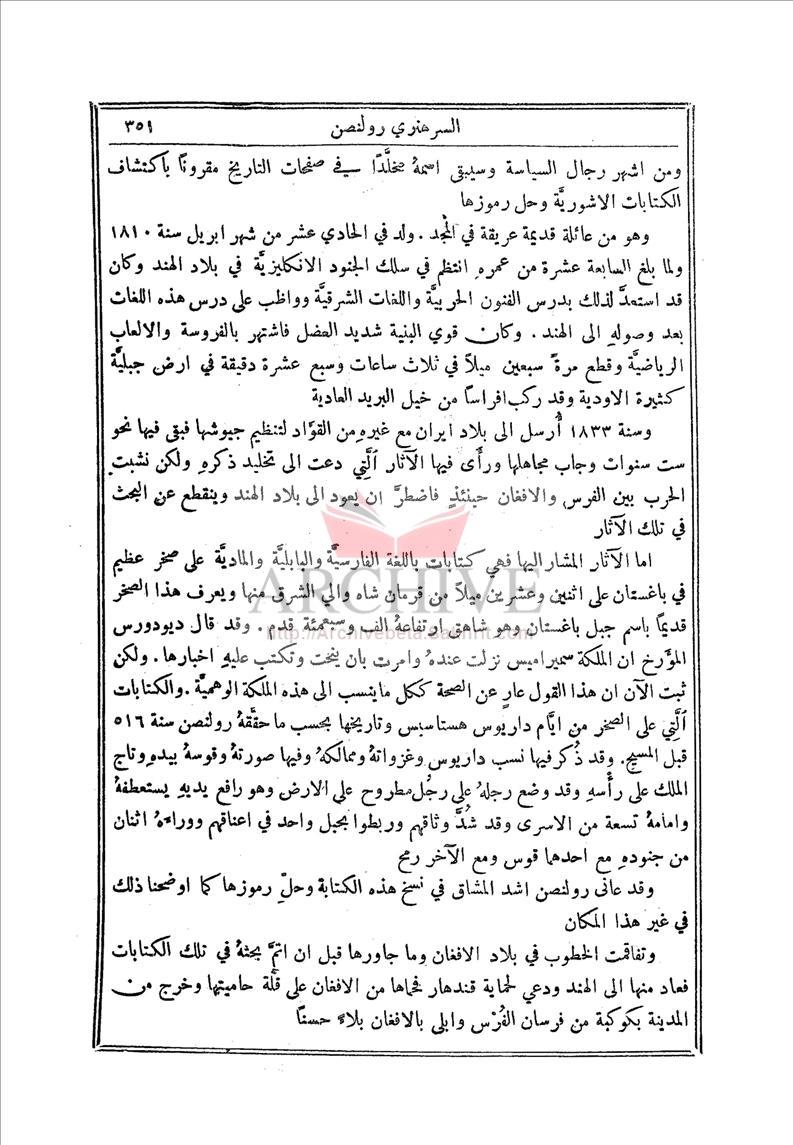 السر هنري رولنصن
٣٥١
ومن اشهر رجال السياسة وسيبقى اسمهُ مخلَّدًا في صفحات التاريخ مقرونًا باكتشاف
الكتابات الاشوريَّة وحل رموزها
وهو من عائلة قديمة عريقة في المجد . ولد في الحادي عشر من شهر ابريل سنة ١٨١٠
ولما بلغ السابعة عشرة من عمرهِ انتظم في سلك الجنود الانكليزيَّة في بلاد الهند وكان
قد استعدَّ لذلك بدرس الفنون الحربيَّة واللغات الشرقيَّة وواظب على درس هذه اللغات
بعد وصولهِ الى الهند . وكان قوي البنية شديد العضل فاشتهر بالفروسة والالعاب
الرياضيَّة وقطع مرةً سبعين ميلاً في ثلاث ساعات وسبع عشرة دقيقة في ارض جبليَّة
كثيرة الاودية وقد ركب افراسًا من خيل البريد العادية
وسنة ١٨٣٣ أُرسل الى بلاد ايران مع غيرهِ من القوَّاد لتنظيم جيوشها فبقي فيها نحو
ست سنوات وجاب مجاهلها ورأى فيها الآثار الَّتي دعت الى تخليد ذكرهِ ولكن نشبت
الحرب بين الفرس والافغان حينئذٍ فاضطرَّ ان يعود الى بلاد الهند وينقطع عن البحث
في تلك الآثار
اما الآثار المشار اليها فهي كتابات باللغة الفارسيَّة والبابليَّة والماديَّة على صخر عظيم
في باغستان على اثنين وعشرين ميلاً من قرمان شاه والي الشرق منها ويعرف هذا الصخر
قديمًا باسم جبل باغستان وهو شاهق ارتفاعهُ الف وسبعمئة قدم . وقد قال ديودورس
المؤرخ ان الملكة سميراميس نزلت عندهُ وامرت بان ينحت وتكتب عليهِ اخبارها . ولكن
ثبت الآن ان هذا القول عارٍ عن الصحة ككل ما ينسب الى هذه الملكة الوهميَّة . والكتابات
الَّتي على الصخر من ايَّام داريوس هستاسبس وتاريخها بحسب ما حقَّقهُ رولنصن سنة ٥١٦
قبل المسيح . وقد ذُكر فيها نسب داريوس وغزواتهُ وممالكهُ وفيها صورتهُ وقوسهُ بيدهِ وتاج
الملك على رأسهِ وقد وضع رجلهُ على رجُل مطروح على الارض وهو رافع يديهِ يستعطفهُ
وامامهُ تسعة من الاسرى وقد شُدَّ وثاقهم وربطوا بحبل واحد في اعناقهم ووراءهُ اثنان
من جنودهِ مع احدهما قوس ومع الآخر رمح
وقد عانى رولنصن اشد المشاق في نسخ هذه الكتابة وحلّ رموزها كما اوضحنا ذلك
في غير هذا المكان
وتفاقمت الخطوب في بلاد الافغان وما جاورها قبل ان اتمَّ بحثهُ في تلك الكتابات
فعاد منها الى الهند ودعي لحماية قندهار فحماها من الافغان على قلَّة حاميتها وخرج من
المدينة بكوكبة من فرسان الفُرْس وابلى بالافغان بلاءً حسنًا
ARCHIVE
http://Archivebeta.Sakhrit.com